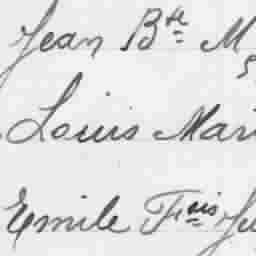 Jean Bte M
Louis Mari
Emile Fcis